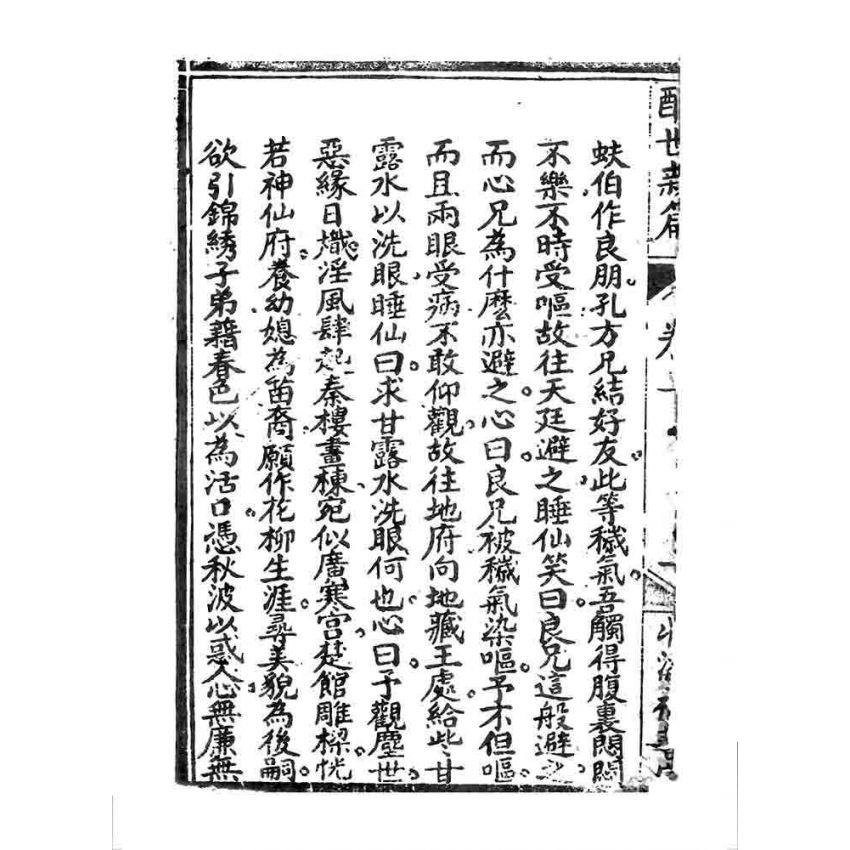 醒世新篇 卷
蚨伯作良朋。孔方兄結好友。此等穢氣。吾觸得腹裏悶悶
不樂。不時受嘔。故往天廷避之。睡仙笑曰。良兄這般避之。
而心兄為什麼亦避之。心曰。良兄被穢氣染嘔。予不但嘔。
而且兩眼受病。不敢仰觀。故往地府向地藏王處。給些甘
露水以洗眼。睡仙曰。求甘露水洗眼何也。心曰。予觀塵世。
惡緣日熾。淫風肆起。秦樓畫棟。宛似廣寒宮。楚館雕樑。恍
若神仙府。養幼媳為苗裔。願作花柳生涯。尋美貌為後嗣。
欲引錦綉子弟。藉春色以為活口。憑秋波以惑人心。無廉無